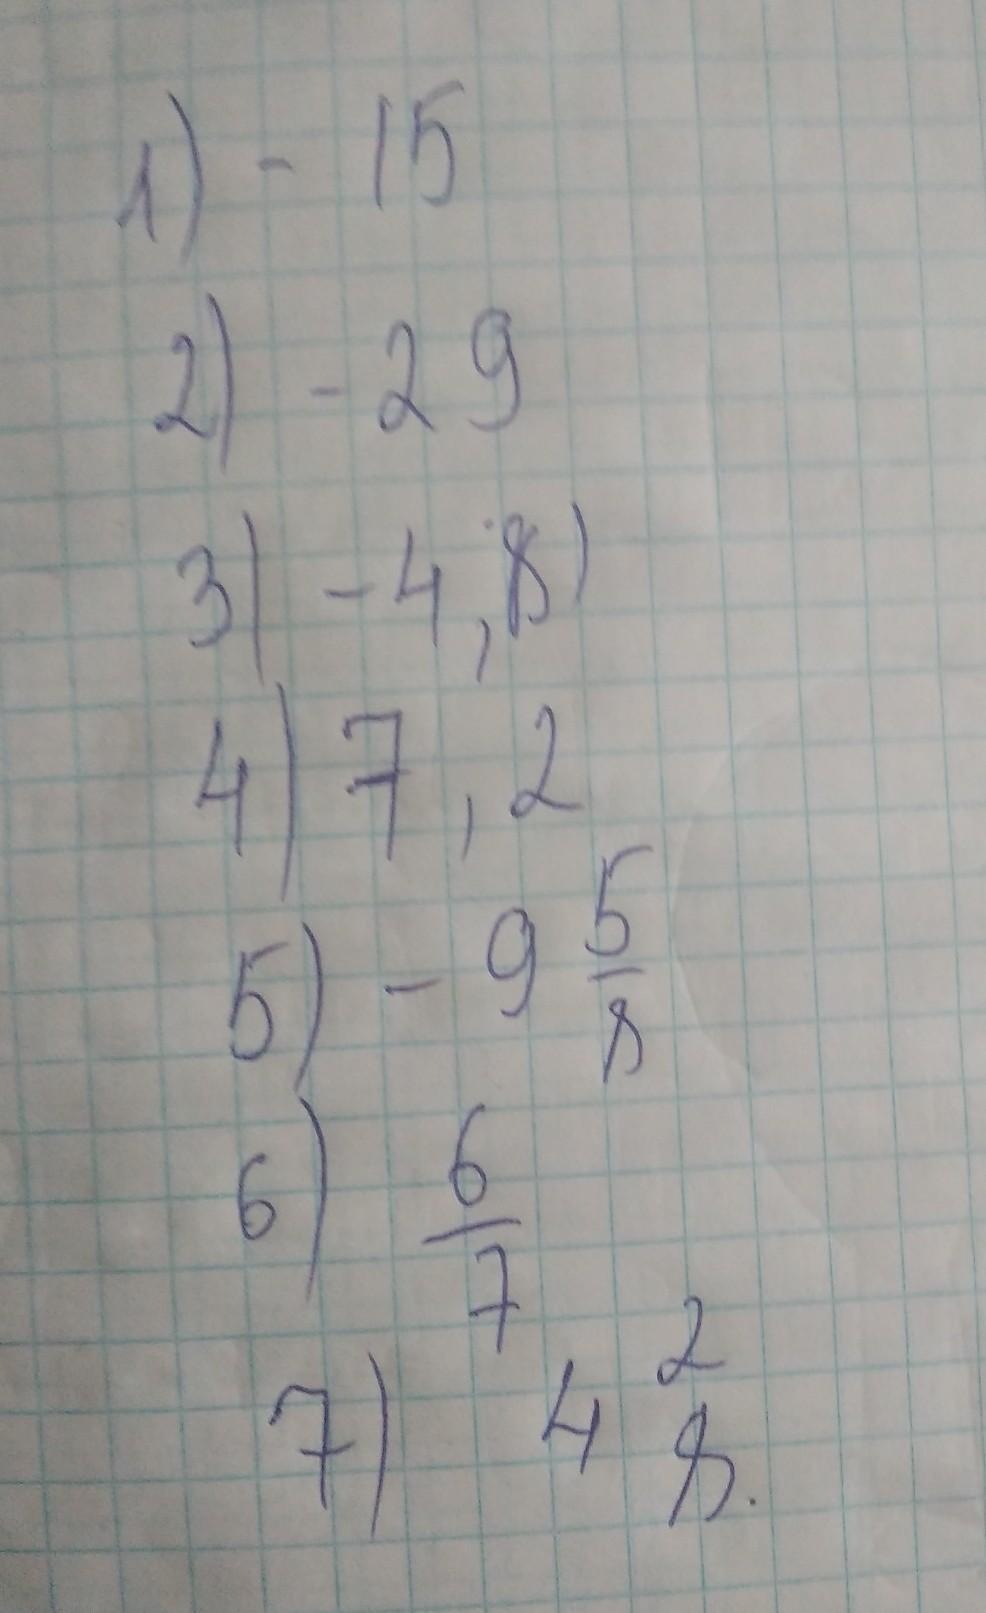 1) - 15
2) - 29
3) - 4,8)
4) 7,2
5) - 9 5/8
6) 6/7
7) 4 2/8.